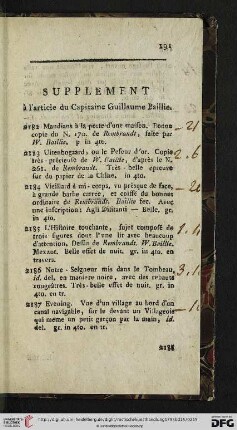 295
SUPPLEMENT
à l'article du Capitaine Guillaume Baillie.
2182 Mandiant à la porte d'une maison. Bonne
copie du N. 170. de Rembrandt, faite par
W. Baillie. p in 4to.
2183 Uitenbogaard, ou le Peseur d'or. Copie
très précieuse de W. Baillie, d'après le N.
261. de Rembrandt. Très belle épreuve
sur du papier de la Chine.
2184 Vieillard à mi-corps, vu presque de face,
à grande barbe carrée, et coiffé du bonnet
ordinaire de Rembrandt. Baillie fec. Avec
une inscription: Belle, gr.
in 4to.
2185 L'Histoire touchante, sujet composé de
trois figures dont l'une lit avec beaucoup
d'attention. Dessin de Rembrandt. W. Baillie,
Mezzot. Belle effet de nuit, gr. in 4to. en
travers.
2186 Notre-Seigneur mis dans le Tombeau,
id. del. en maniere noire, avec des
rougeâtres. Très-belle effet de nuit, gr. in
4to. en tr.
2187 Evening. Vue d'un village au bord d'un
canal navigable, sur le devant un Villageois
qui mène un petit garçon par la main, id.
del. gr. in 4to. en tr.
2188